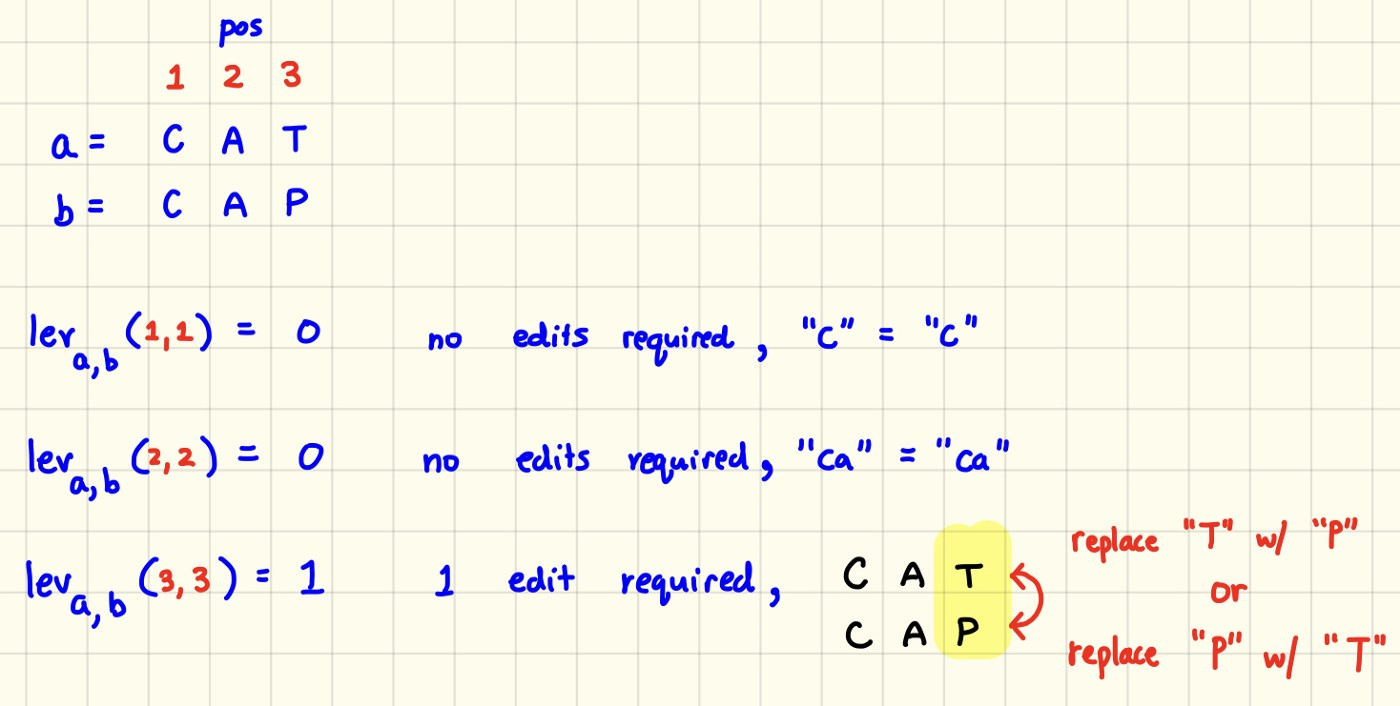 pos
1 2 3
a = C A T
b = C A P
lev a,b (1,1) = 0 no edits required, "c" = "c"
lev a,b (2,2) = 0 no edits required, "ca" = "ca"
lev a,b (3,3) = 1 1 edit required, C A T
C A P
replace "T" w/ "P"
or
replace "P" w/ "T"